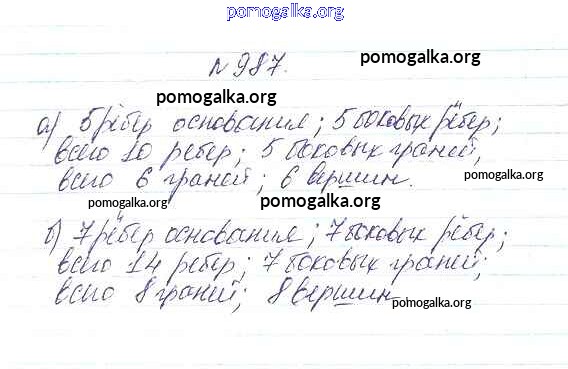 pomogalka.org
№987.
pomogalka.org
pomogalka.org
а) 5 рёбер основания; 5 боковых рёбер;
всего 10 ребер; 5 боковых граней,
всего 6 граней; 6 вершин.
pomogalka.org
pomogalka.org
pomogalka.org
б) 7 рёбер основания; 7 боковых рёбер;
всего 14 ребер; 7 боковых граней;
всего 8 граней; 8 вершин
pomogalka.org